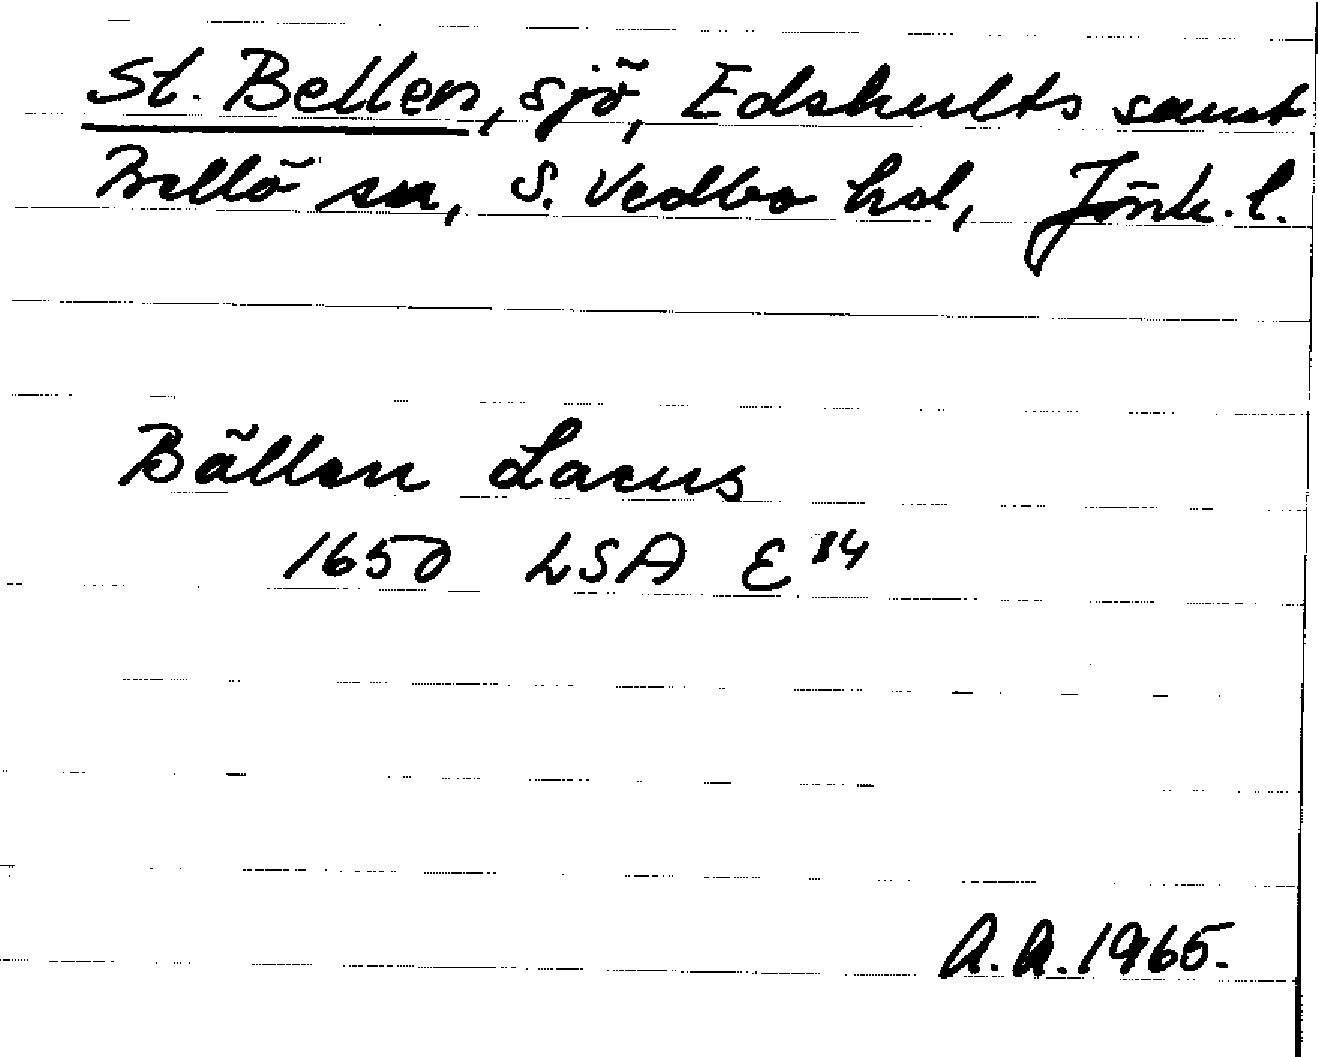 St. Bellen, sjö, Edshults samt
Bellö sn, S. Vedbo hd, Jönk. l.
Bällen Lacus
1650 LSA E 14
A.A. 1965.